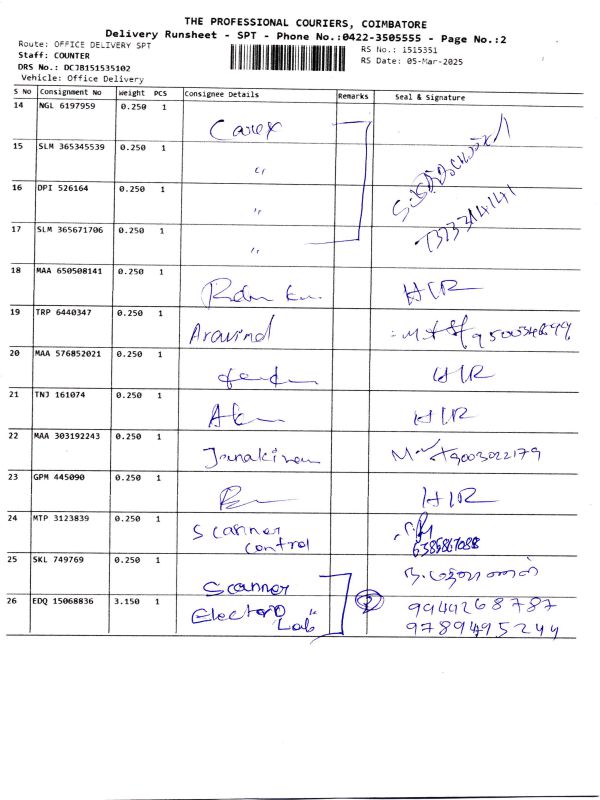 THE PROFESSIONAL COURIERS, COIMBATORE
Delivery Runsheet - SPT - Phone No.:0422-3505555 - Page No.:2
Route: OFFICE DELIVERY SPT
Staff: COUNTER
DRS No.: DCJB151535102
Vehicle: Office Delivery
RS No.: 1515351
RS Date: 05-Mar-2025
S No Consignment No Weight PCS Consignee Details Remarks Seal & Signature
14 NGL 6197959 0.250 1 Carex
15 SLM 365345539 0.250 1 "
16 DPI 526164 0.250 1 "
17 SLM 365671706 0.250 1 "
18 MAA 650508141 0.250 1 HIR
19 TRP 6440347 0.250 1 Aravind
20 MAA 576852021 0.250 1 HIR
21 TNJ 161074 0.250 1 HIR
22 MAA 303192243 0.250 1 9003022179
23 GPM 445090 0.250 1 HIR
24 MTP 3123839 0.250 1 Scanner
control
25 SKL 749769 0.250 1 Scanner
26 EDQ 15068836 3.150 1 Electro "
Lab
9944268787
9789495244